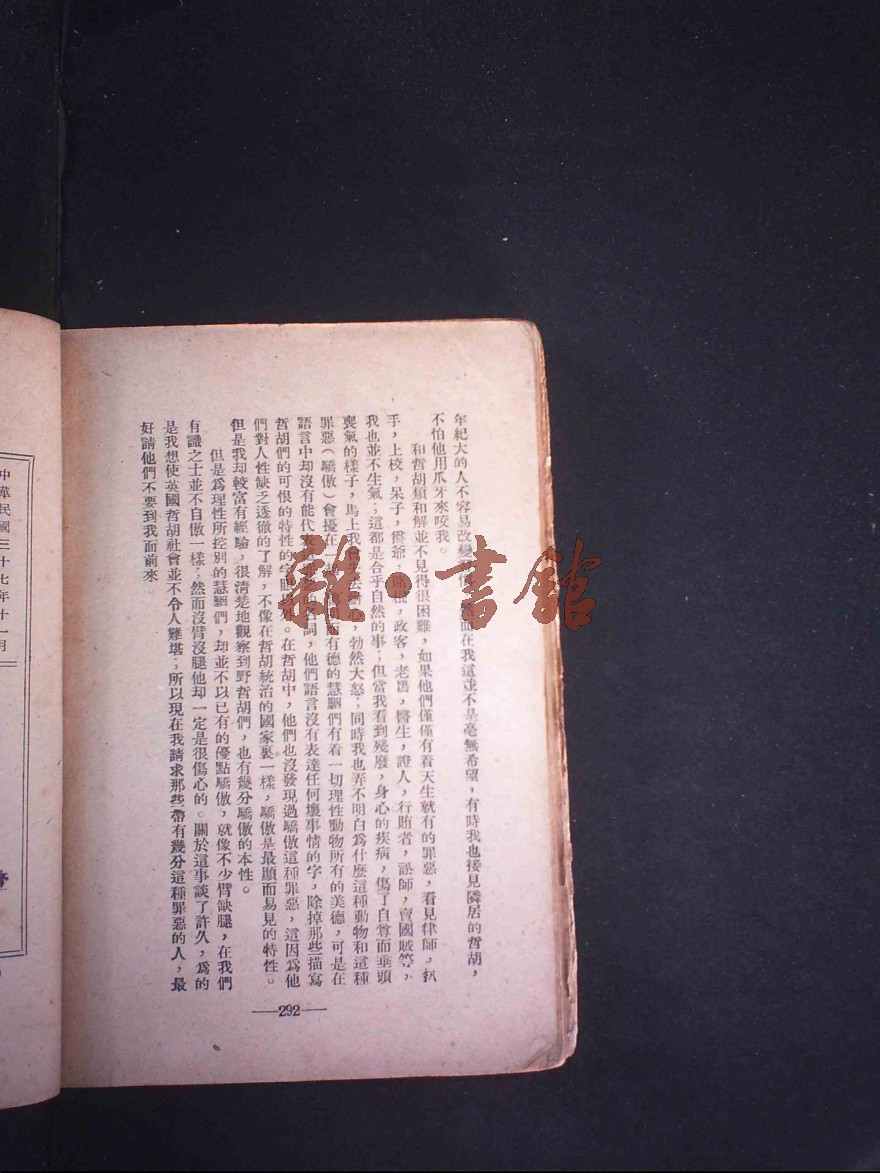 年紀大的人不容易改變
而在我這並不是毫無希望，有時我也接見隣居的哲胡，
不怕他用爪牙來咬我。
和哲胡類和解並不見得很困難，如果他們僅僅有着天生就有的罪惡，看見律師，扒
手，上校，呆子，爵爺，賭棍，政客，老鴇，醫生，證人，行賄者，訟師，賣國賊等，
我也並不生氣；這都是合乎自然的事；但當我看到殘廢，身心的疾病，傷了自尊而垂頭
喪氣的樣子，馬上我
勃然大怒；同時我也弄不明白爲什麽這種動物和這種
罪惡（驕傲）會擾在一
而有德的慧駰們有着一切理性動物所有的美德，可是在
語言中却沒有能代
名詞，他們語言沒有表達任何壞事情的字，除掉那些描寫
哲胡們的可恨的特性的字眼
。在哲胡中，他們也沒發現過驕傲這種罪惡，這因爲他
們對人性缺乏透徹的了解，不像在哲胡統治的國家裏一樣，驕傲是最顯而易見的特性。
但是我却較富有經驗，很清楚地觀察到野哲胡們，也有幾分驕傲的本性。
但是爲理性所控別的慧駰們，却並不以已有的優點驕傲，就像不少臂缺腿，在我們
有識之士並不自傲一樣；然而沒臂沒腿他却一定是很傷心的。關於這事談了許久，爲的
是我想使英國哲胡社會並不令人難堪；所以現在我請求那些帶有幾分這種罪惡的人，最
好請他們不要到我面前來。
—292—
中華民國三十七年十一月
雜·書館